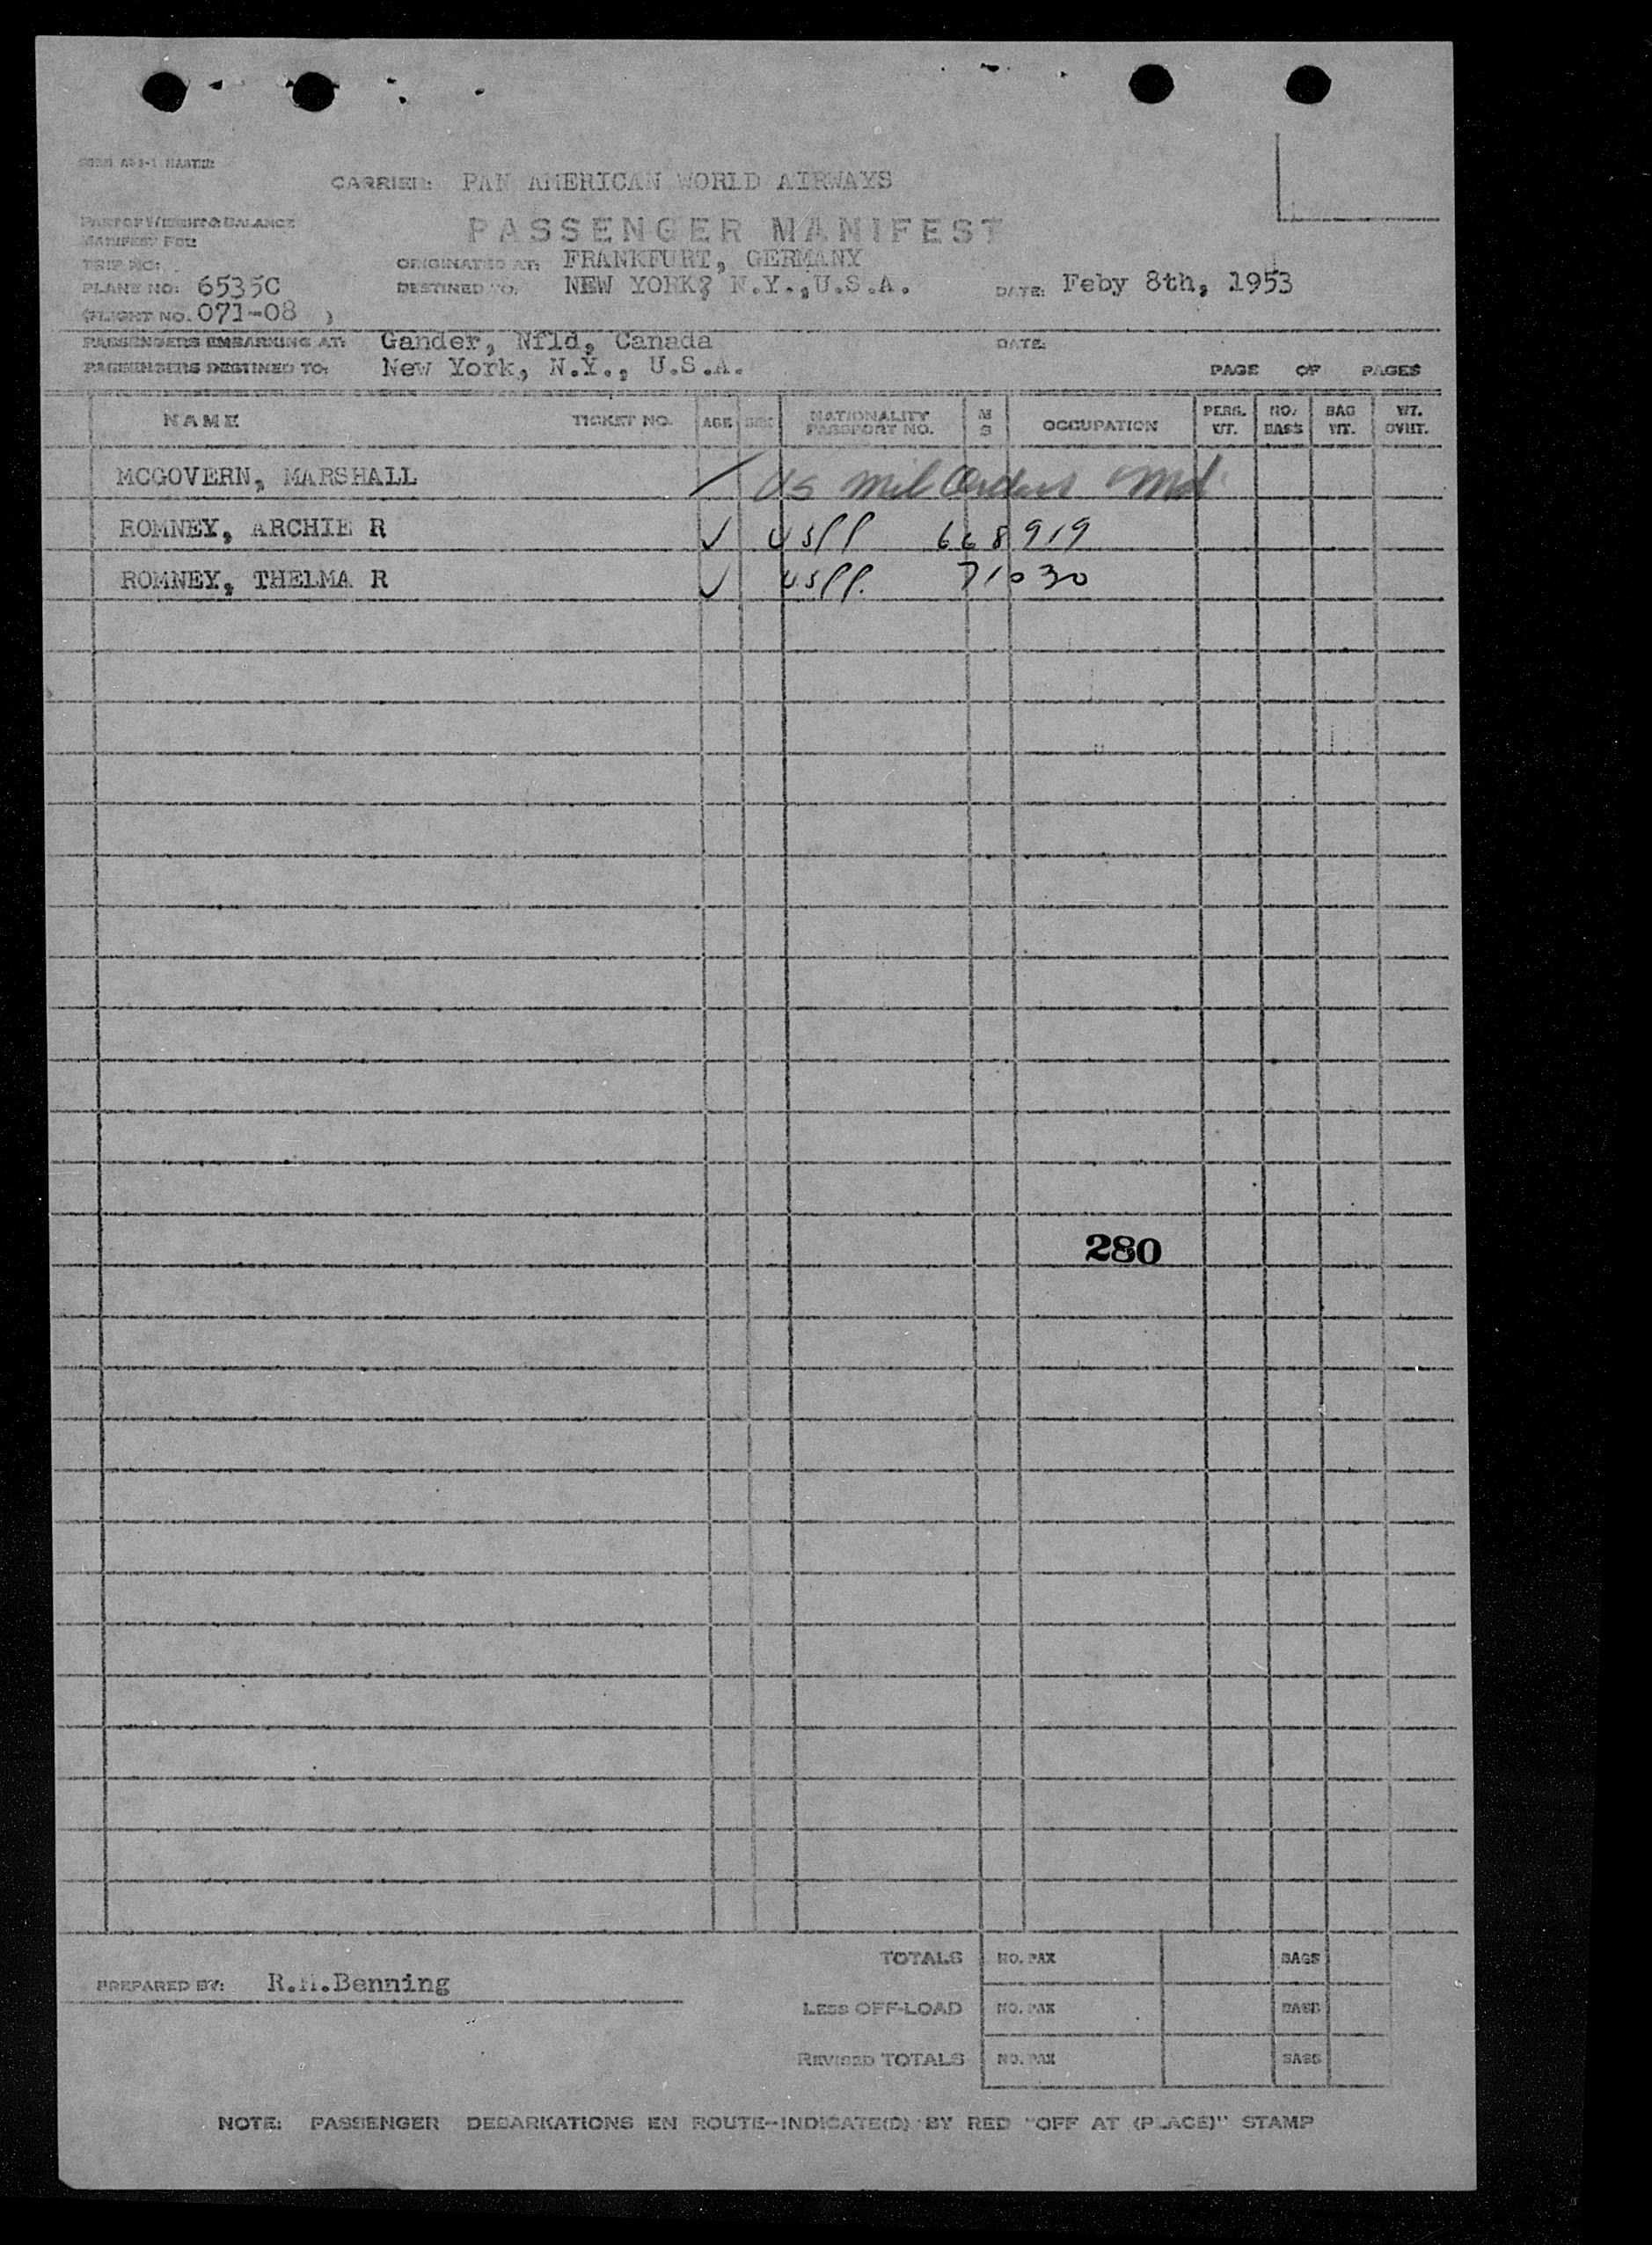 CARRIER: PAN AMERICAN WORLD AIRWAYS
PASSENGER MANIFEST
PART OF WEIGHT & BALANCE
MANIFEST FOR:
TRIP NO:
ORIGINATED AT: FRANKFURT, GERMANY
PLANE NO: 6535C
DESTINED TO: NEW YORK? N.Y.,U.S.A.
DATE: Feby 8th, 1953
(FLIGHT NO. 071-08 )
PASSENGERS EMBARKING AT: Gander, Nfld, Canada
DATE:
PASSENGERS DESTINED TO: New York, N.Y., U.S.A.
PAGE OF PAGES
NAME TICKET NO. AGE SEX NATIONALITY PASSPORT NO. M S OCCUPATION PERS. WT. NO. BAGS BAG WT. WT. OVHT.
MCGOVERN, MARSHALL US Mil Orders
ROMNEY, ARCHIE R ✓ USPP 668919
ROMNEY, THELMA R ✓ USPP. 71030
280
TOTALS NO. PAX BAGS
PREPARED BY: R.H.Benning
LESS OFF-LOAD NO. PAX BAGS
REVISED TOTALS NO. PAX BAGS
NOTE: PASSENGER DEBARKATIONS EN ROUTE-INDICATE(D) BY RED "OFF AT (PLACE)" STAMP